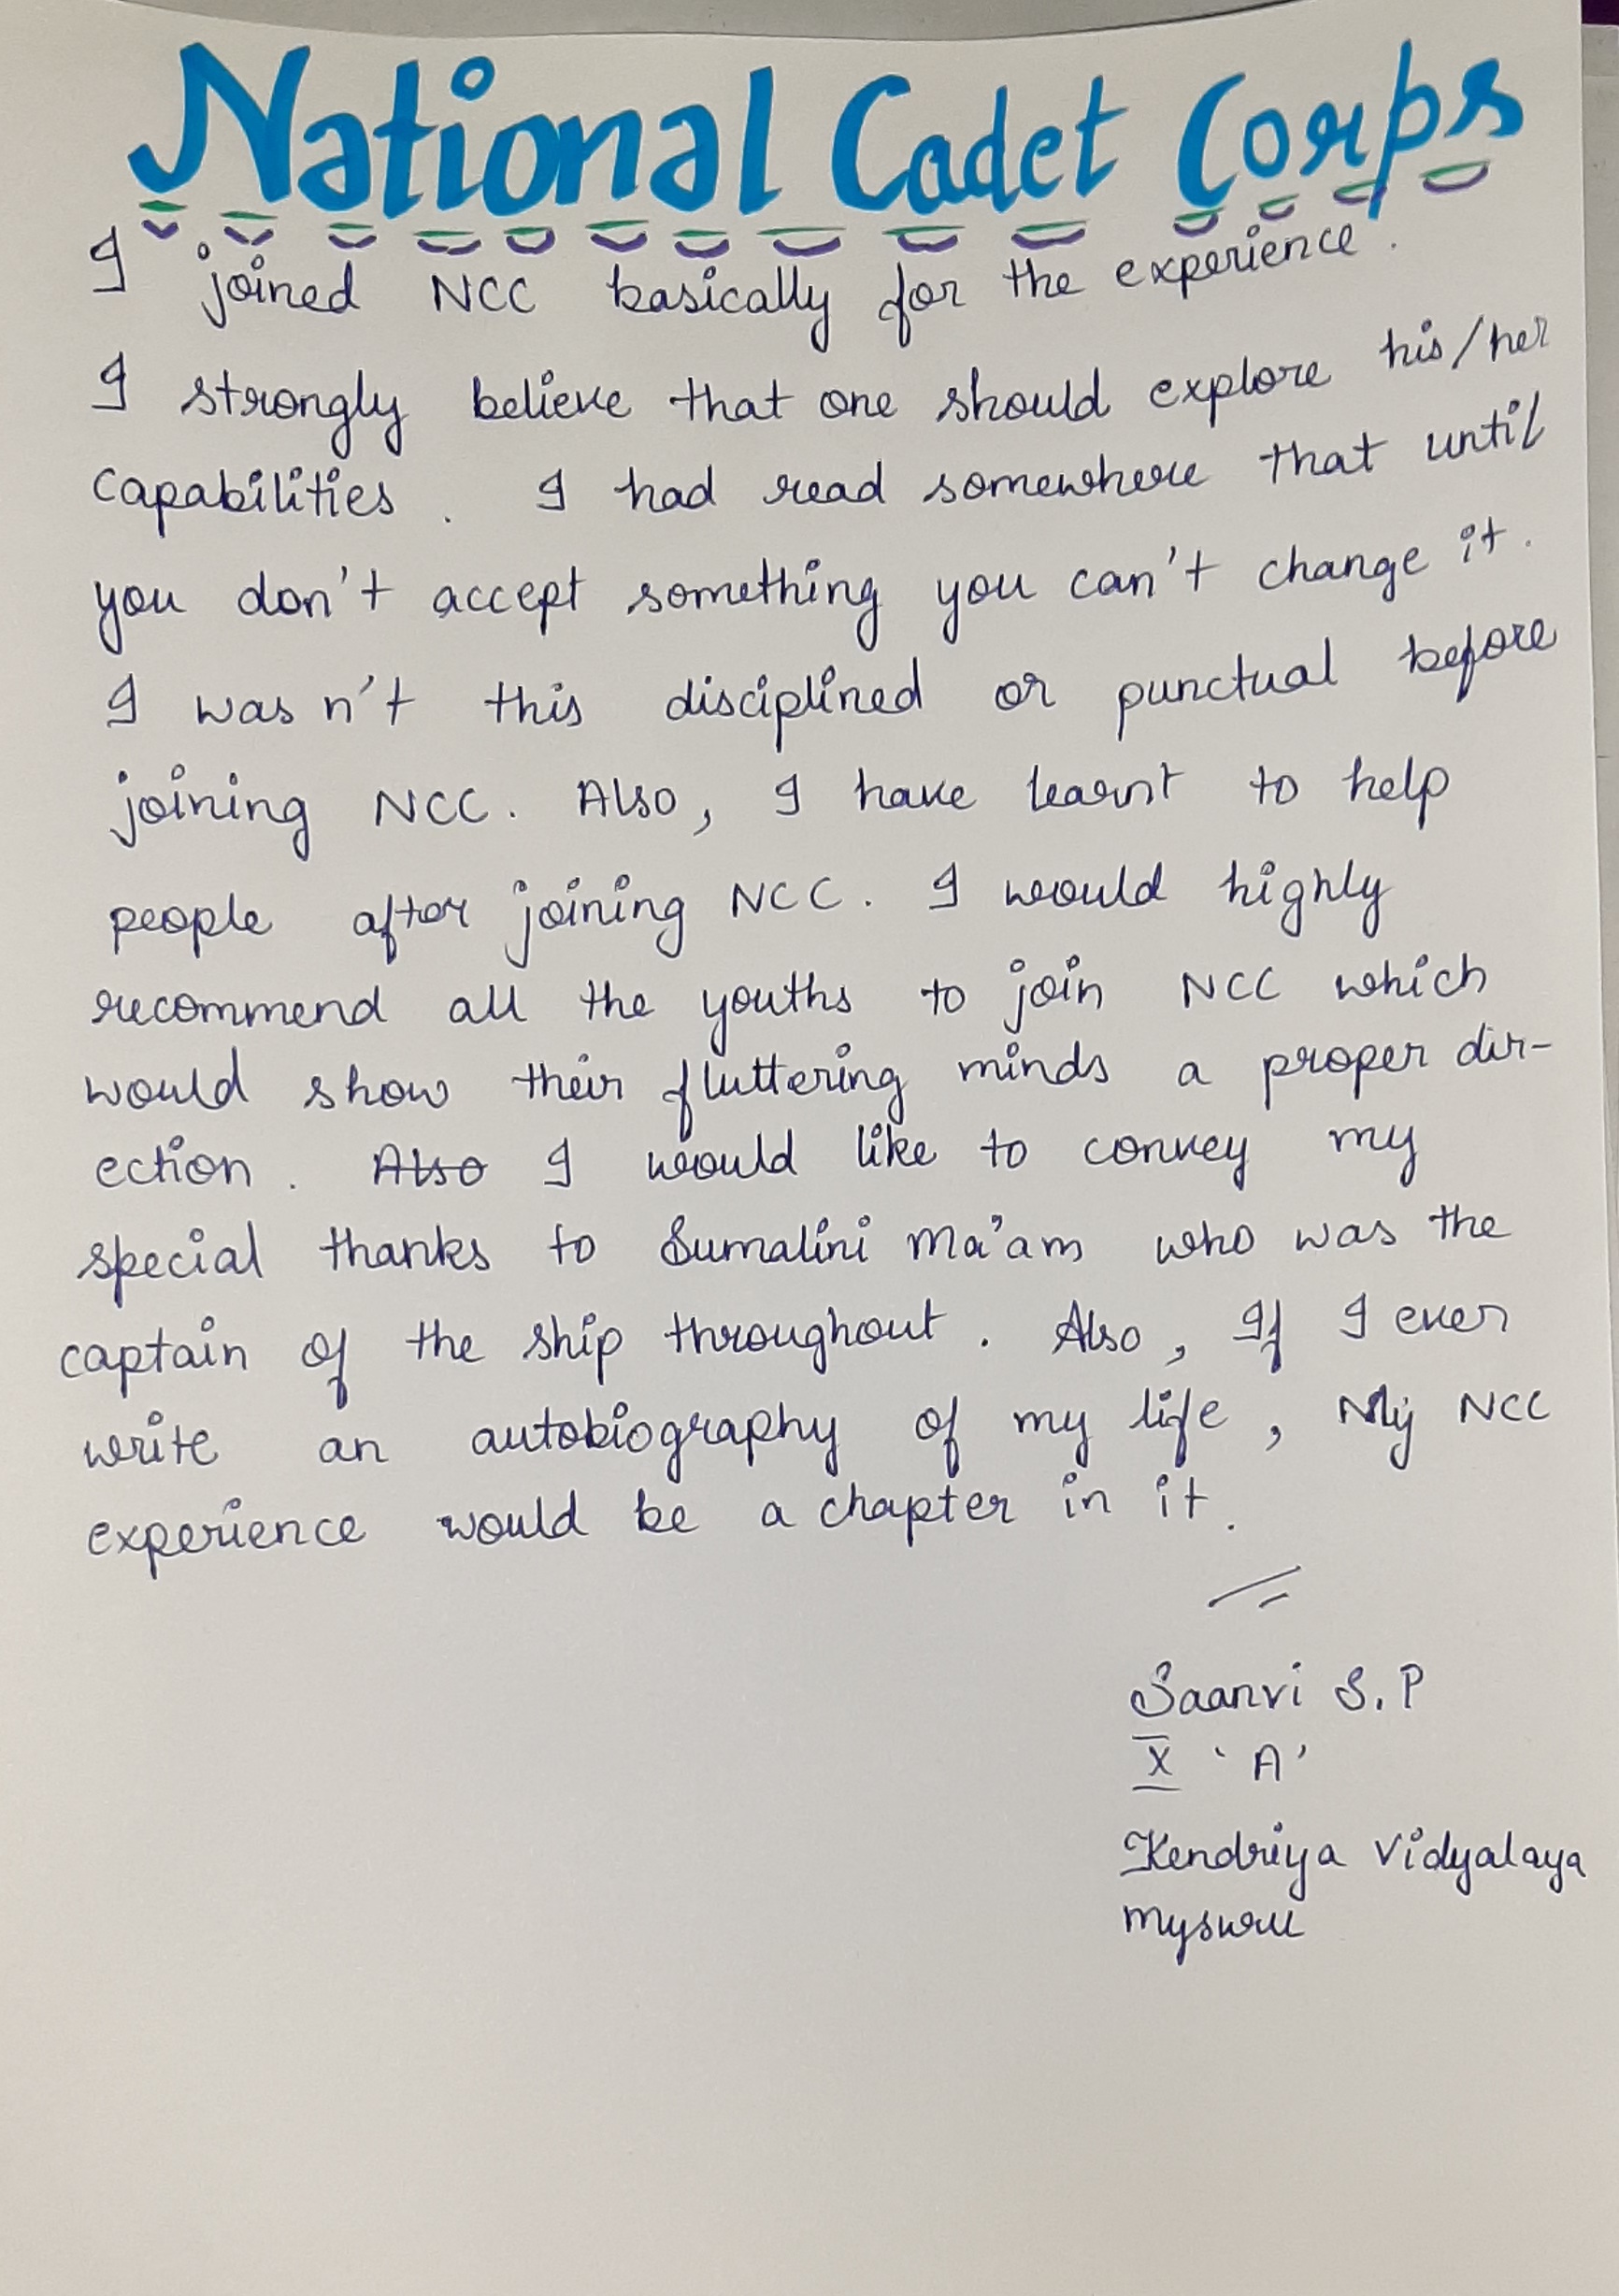 National Cadet Corps
I joined NCC basically for the experience.
I strongly believe that one should explore his/her
capabilities. I had read somewhere that until
you don't accept something you can't change it.
I wasn't this disciplined or punctual before
joining NCC. Also, I have learnt to help
people after joining NCC. I would highly
recommend all the youths to join NCC which
would show their fluttering minds a proper dir-
ection. Also I would like to convey my
special thanks to Sumalini Ma'am who was the
captain of the ship throughout. Also, If I ever
write an autobiography of my life, My NCC
experience would be a chapter in it.
Saanvi S.P
X 'A'
Kendriya Vidyalaya
Mysuru